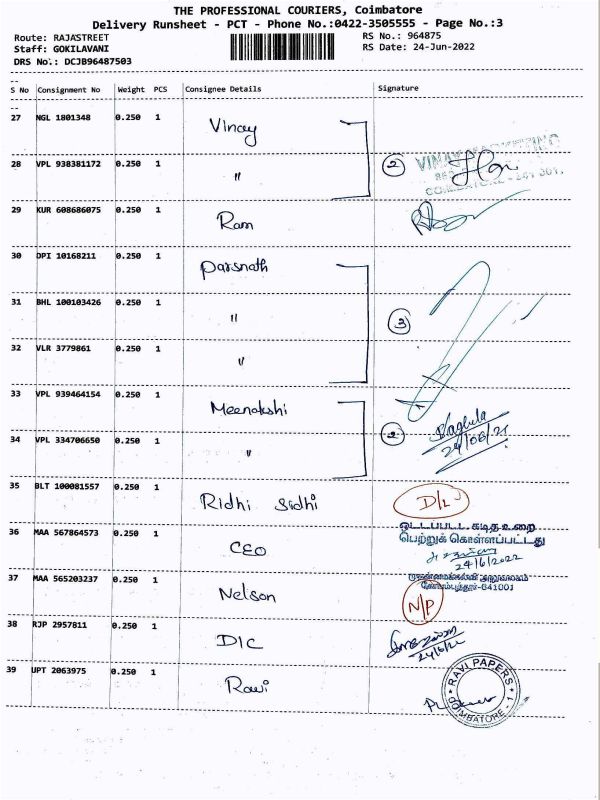 THE PROFESSIONAL COURIERS, Coimbatore
Delivery Runsheet - PCT - Phone No.:0422-3505555 - Page No.:3
Route: RAJASTREET RS No.: 964875
Staff: GOKILAVANI RS Date: 24-Jun-2022
DRS No.: DCJB96487503
S No Consignment No Weight PCS Consignee Details Signature
27 NGL 1801348 0.250 1 Vinay
28 VPL 938381172 0.250 1 〃 2 VINAY MARKETING
COIMBATORE - 641 001.
29 KUR 608686075 0.250 1 Ram
30 DPI 10168211 0.250 1 Parsnath
31 BHL 100103426 0.250 1 〃 3
32 VLR 3779861 0.250 1 〃
33 VPL 939464154 0.250 1 Meenakshi
34 VPL 334706650 0.250 1 〃 2
35 BLT 100081557 0.250 1 Ridhi Sidhi D/L
36 MAA 567864573 0.250 1 CEO ஒட்டப்பட்ட கடித உறை
பெற்றுக் கொள்ளப்பட்டது
24/6/2022
37 MAA 565203237 0.250 1 Nelson கோயம்புத்தூர்-641001
N/P
38 RJP 2957811 0.250 1 DIC
39 UPT 2063975 0.250 1 Ravi RAVI PAPERS
COIMBATORE - 1